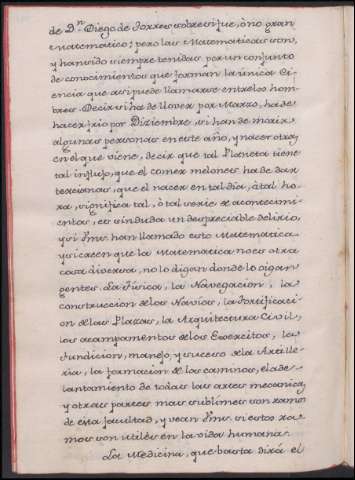 de Dn. Diego de Torres sobre si fue, ò no gran
Matematico; pero las Matematicas son,
y han sido siempre tenidas por un conjunto
de conocimientos que forman la unica Ci-
encia que asi puede llamarse entre los hom-
bres. Decir si ha de llover por Marzo, ha de
hacer frio por Diziembre, si han de morir
algunas personas en este año, y nacer otras
en el que viene, decir que tal Planeta tiene
tal influjo, que el comer melones ha de dar
tercianas, que el nacer en tal dia, à tal ho-
ra, significa tal, ò tal serie de acontecimi-
entos, es sin duda un despreciable delirio,
y si Vms. han llamado esto Matematica
y si creen que la Matematica no es otra
cosa diversa, no lo digan donde lo oigan
gentes. La Fisica, la Navegacion, la
construccion de los Navios, la Fortificaci-
on de las Plazas, la Arquitectura Civil,
los acampamentos de los Exercitos, la
Fundicion, manejo, y suceso de la Artille-
ria, la formacion de los caminos, el ade-
lantamiento de todas las artes mecanicas
y otras partes mas sublimes son ramos
de esta facultad, y vean Vms. si estos ra-
mos son utiles en la vida humana.
La Medicina, que basta dixo el